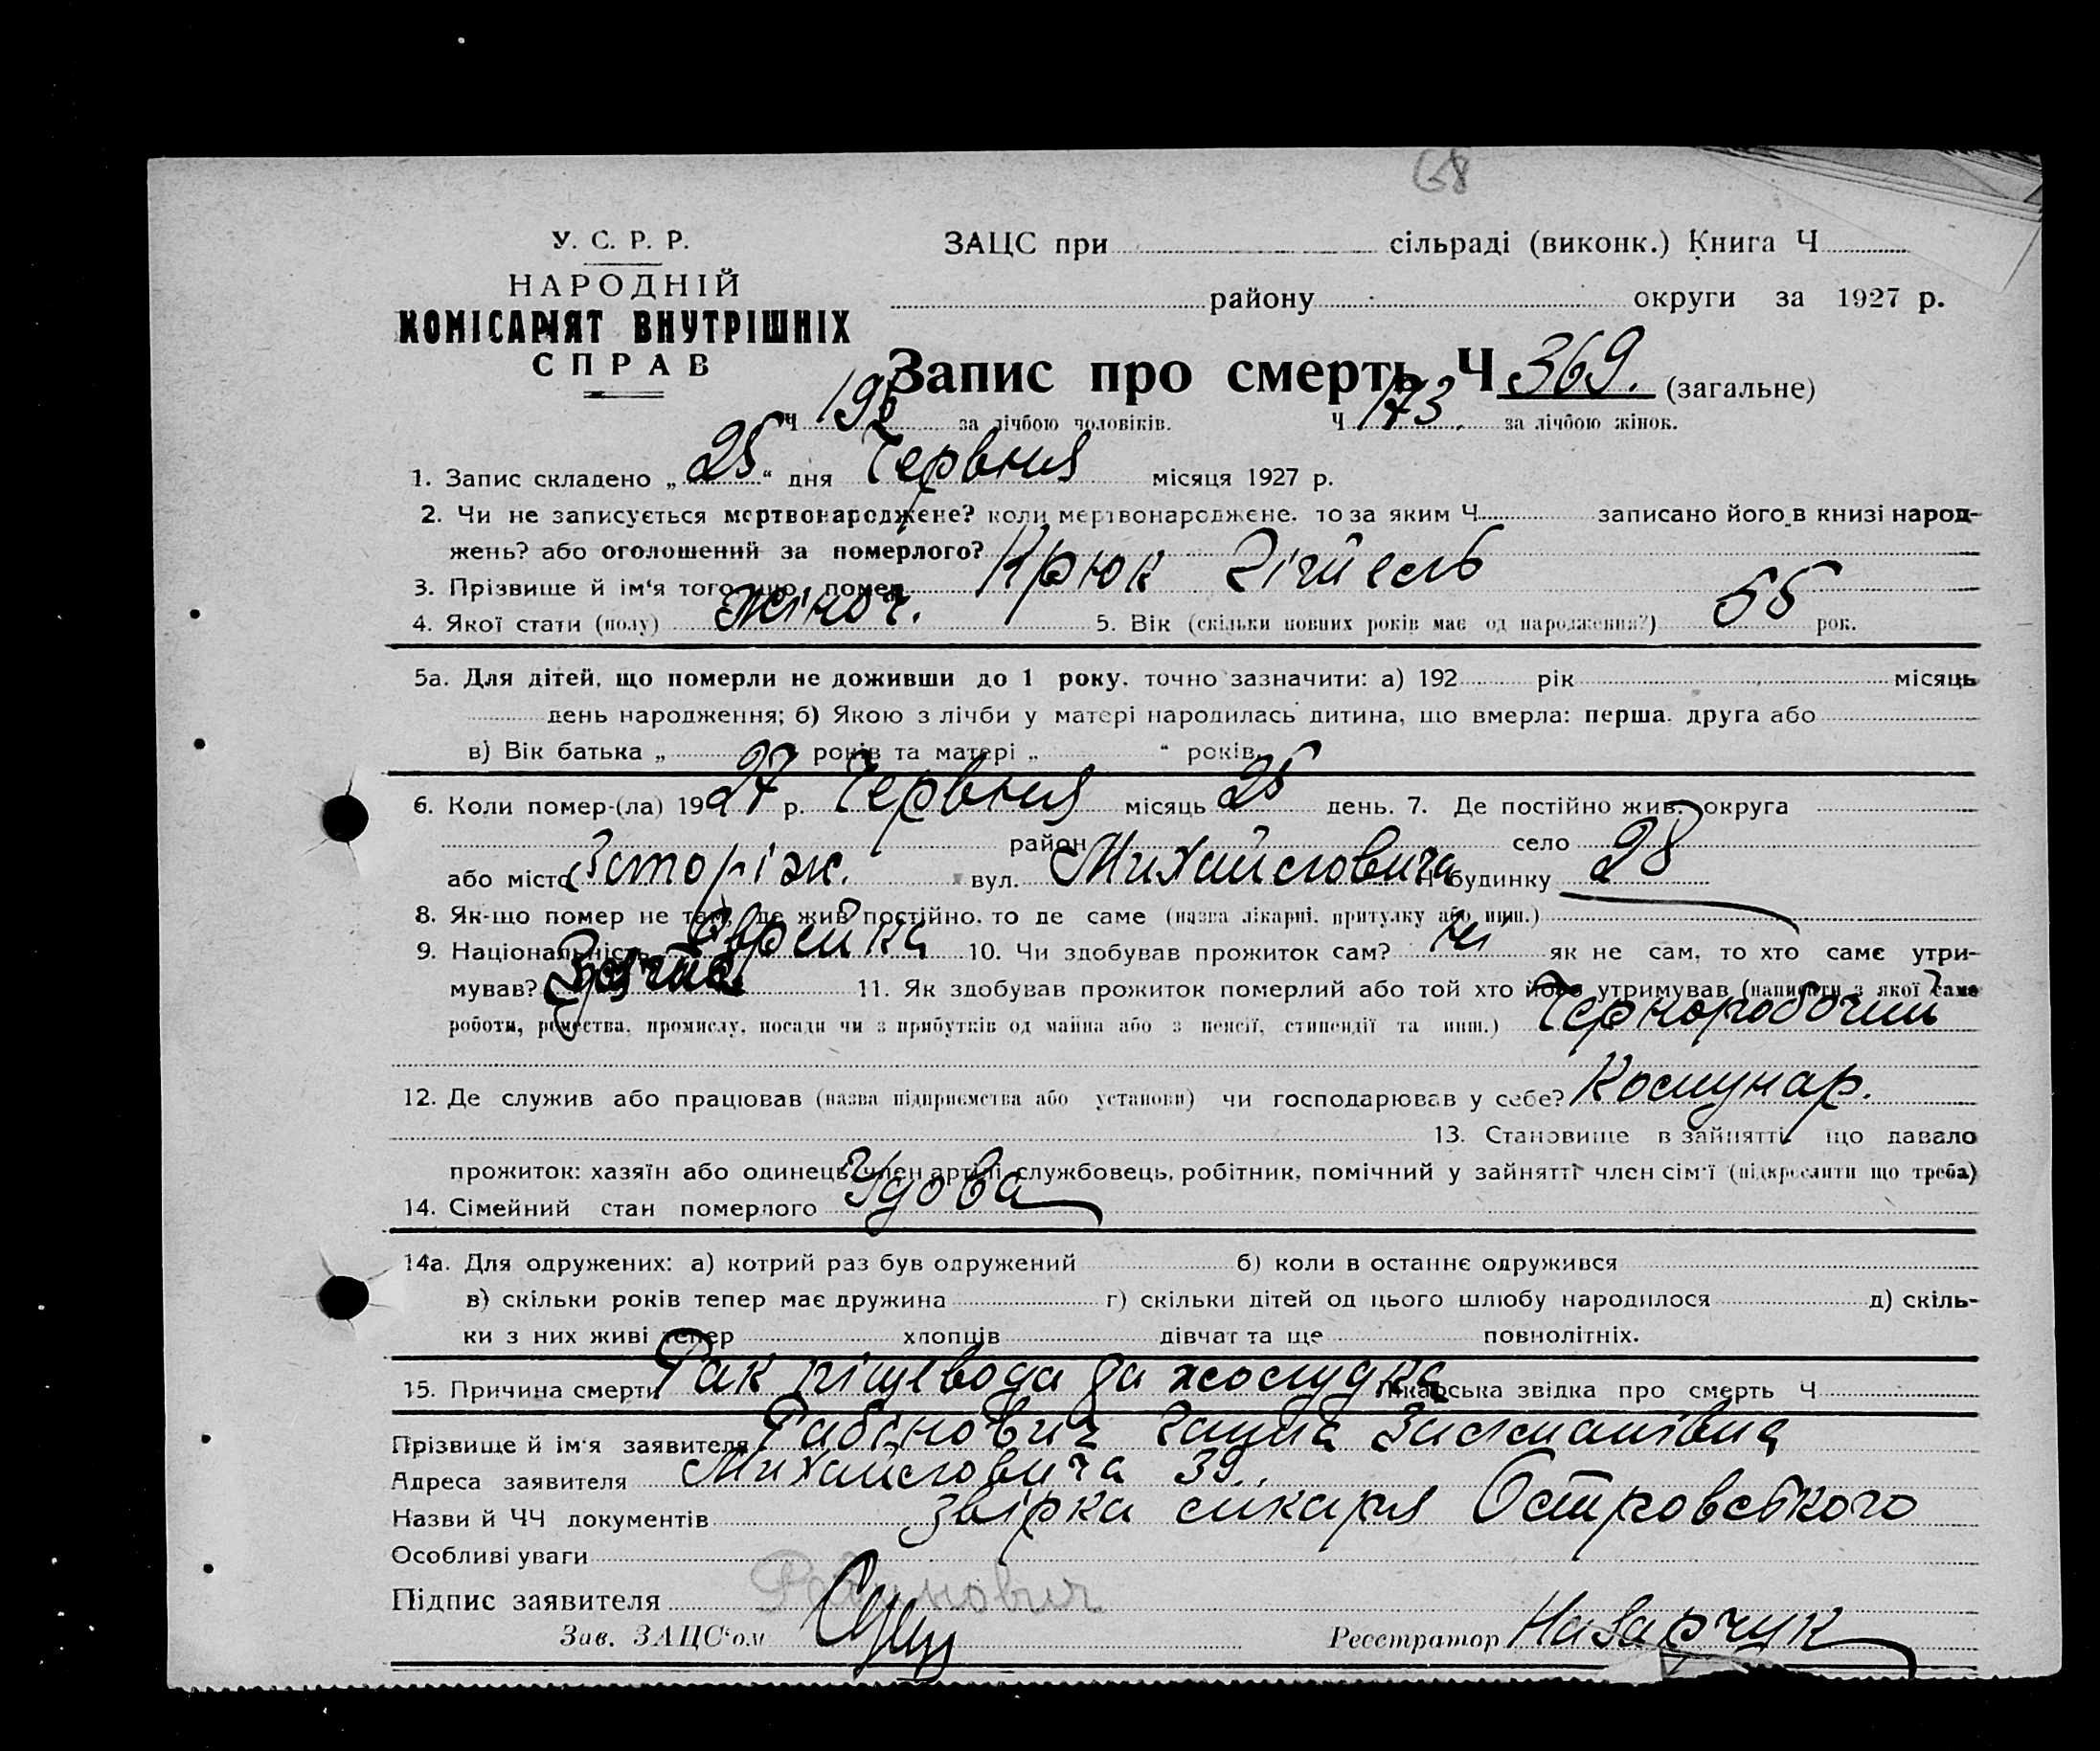 68
У. С. Р. Р.
НАРОДНІЙ
КОМІСАРІЯТ ВНУТРІШНІХ
СПРАВ
ЗАЦС при сільраді (виконк.) Книга Ч
району округи за 1927 р.
Запис про смерть Ч 369. (загальне)
Ч 196 за лічбою чоловіків. Ч 173. за лічбою жінок.
1. Запис складено „ 25 “ дня Червня місяця 1927 р.
2. Чи не записується мертвонароджене? коли мертвонароджене, то за яким Ч. записано його в книзі народ-
жень? або оголошений за померлого?
3. Прізвище й ім‘я того, що помер Крюк
4. Якої стати (полу) жіноч. 5. Вік (скільки повних років має од народження?) 55 рок.
5а. Для дітей, що померли не доживши до 1 року, точно зазначити: а) 192 рік місяць
день народження; б) Якою з лічби у матері народилась дитина, що вмерла: перша, друга або
в) Вік батька „ років та матері „ “ років.
6. Коли помер-(ла) 1927 р. Червня місяць 25 день. 7. Де постійно жив: округа
район село
або місто Запоріж. вул. Михайловича Ч будинку 28
8. Як-що помер не там, де жив постійно, то де саме (назва лікарні, притулку або инш.)
9. Національність Єврейка 10. Чи здобував прожиток сам? ні як не сам, то хто саме утри-
мував? 11. Як здобував прожиток померлий або той хто його утримував (написати з якої саме
роботи, ремества, промислу, посади чи з прибутків од майна або з пенсії, стипендії та инш.) Чернорабочий
12. Де служив або працював (назва підприємства або установи) чи господарював у себе? Комунар.
13. Становище в зайнятті, що давало
прожиток: хазяїн або одинець, член артілі, службовець, робітник, помічний у зайнятті член сім‘ї (підкреслити що треба)
14. Сімейний стан померлого Удова
14а. Для одружених: а) котрий раз був одружений б) коли в останнє одружився
в) скільки років тепер має дружина г) скільки дітей од цього шлюбу народилося д) скіль-
ки з них живі тепер хлопців дівчат та ще повнолітніх.
15. Причина смерти Рак піщевода да жолудка Лікарська звідка про смерть Ч
Прізвище й ім‘я заявителя Рабінович
Адреса заявителя Михайловича 39.
Назви й ЧЧ документів звірка лікаря Островського
Особливі уваги
Підпис заявителя Рабинович
Зав. ЗАЦС‘ом Реєстратор Назарчук